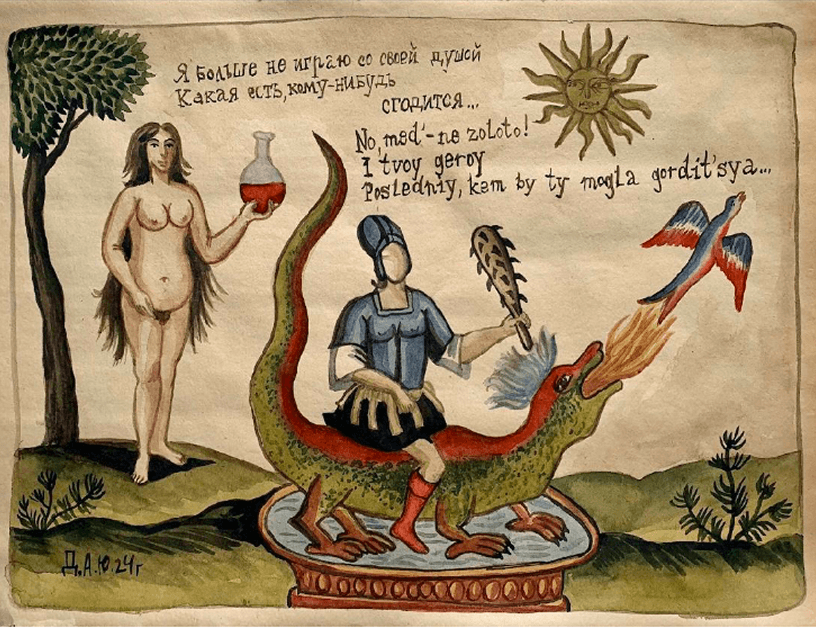 Я больше не играю со своей душой
Какая есть, кому-нибудь
сгодится...
No, med'-ne zoloto!
I tvoy geroy
Posledniy, kem by ty mogla gordit'sya...
Д.А.Ю.24г